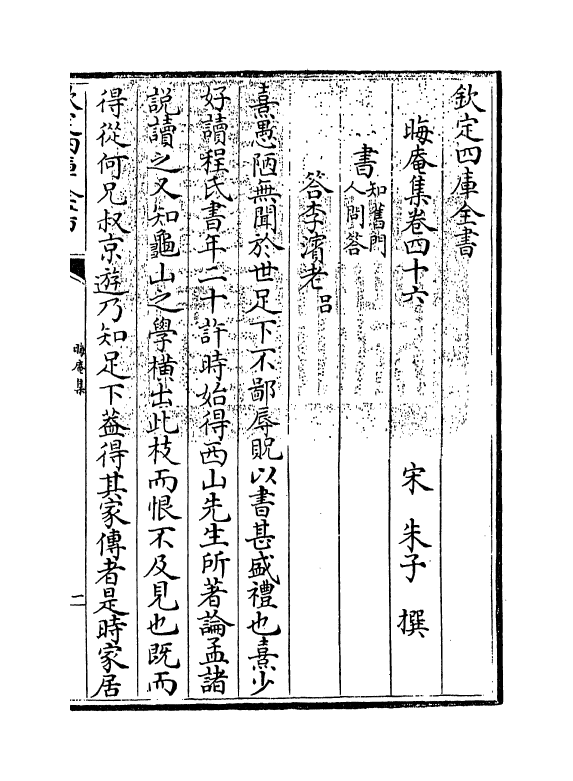 欽定四庫全書
晦庵集卷四十六
宋 朱子 撰
書知舊門
人問答
答李濱老呂
熹愚陋無聞於世足下不鄙辱貺以書甚盛禮也熹少
好讀程氏書年二十許時始得西山先生所著論孟諸
說讀之又知龜山之學橫出此枝而恨不及見也既而
得從何兄叔京遊乃知足下蓋得其家傳者是時家居
晦庵集